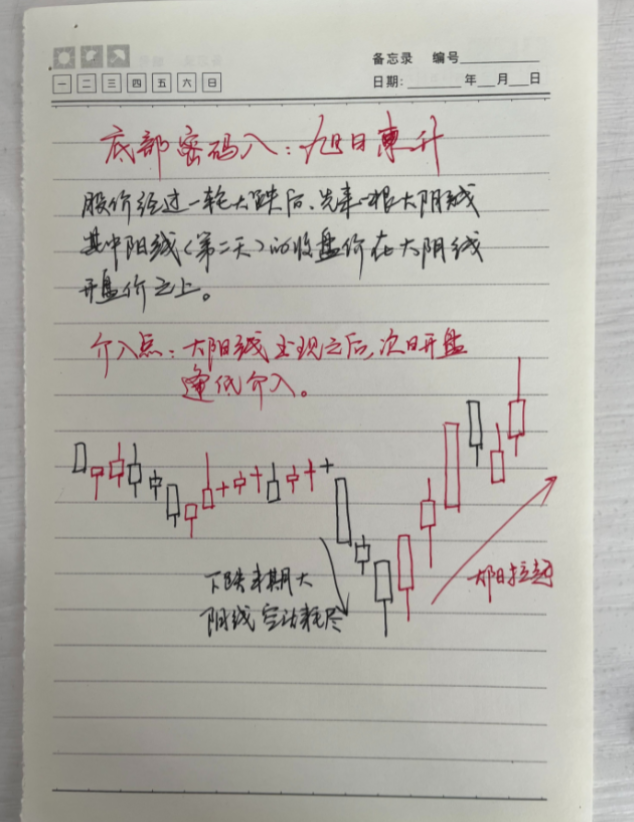 备忘录 编号
一 二 三 四 五 六 日
日期: 年 月 日
底部密码八：旭日东升
股价经过一轮大跌后、先来一根大阴线
其中阳线(第二天)的收盘价在大阴线
开盘价之上。
介入点：大阳线出现之后,次日开盘
逢低介入。
下跌末期大
阴线空动耗尽
大阳拉起